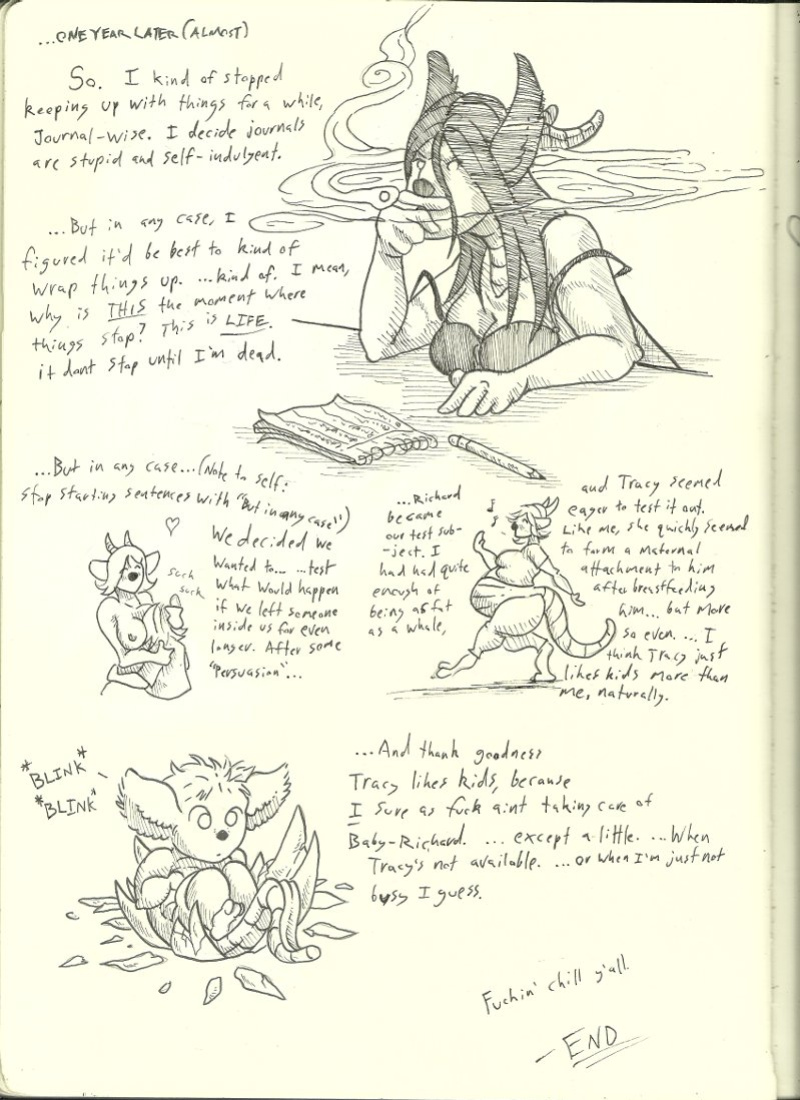 ...ONE YEAR LATER (ALMOST)
So. I kind of stopped
keeping up with things for a while,
Journal-wise. I decide journals
are stupid and self-indulgent.
...But in any case, I
figured it'd be best to kind of
wrap things up. ...kind of. I mean,
why is THIS the moment where
things stop? This is LIFE.
it dont stop until I'm dead.
...But in any case...(Note to self:
stop starting sentences with "But in any case")
We decided we
wanted to... ...test
what would happen
if we left someone
inside us for even
longer. After some
"Persuasion"...
suck
suck
...Richard
became
our test sub-
-ject. I
had had quite
enough of
being as fat
as a whale,
and Tracy seemed
eager to test it out.
Like me, she quickly seemed
to form a maternal
attachment to him
after breastfeeding
him... but more
so even. ... I
think Tracy just
likes kids more than
me, naturally.
*BLINK*
*BLINK*
...And thank goodness
Tracy likes kids, because
I sure as fuck aint taking care of
Baby-Richard. ... except a little. ...When
Tracy's not available. ...or when I'm just not
busy I guess.
Fuckin' chill y'all.
-END